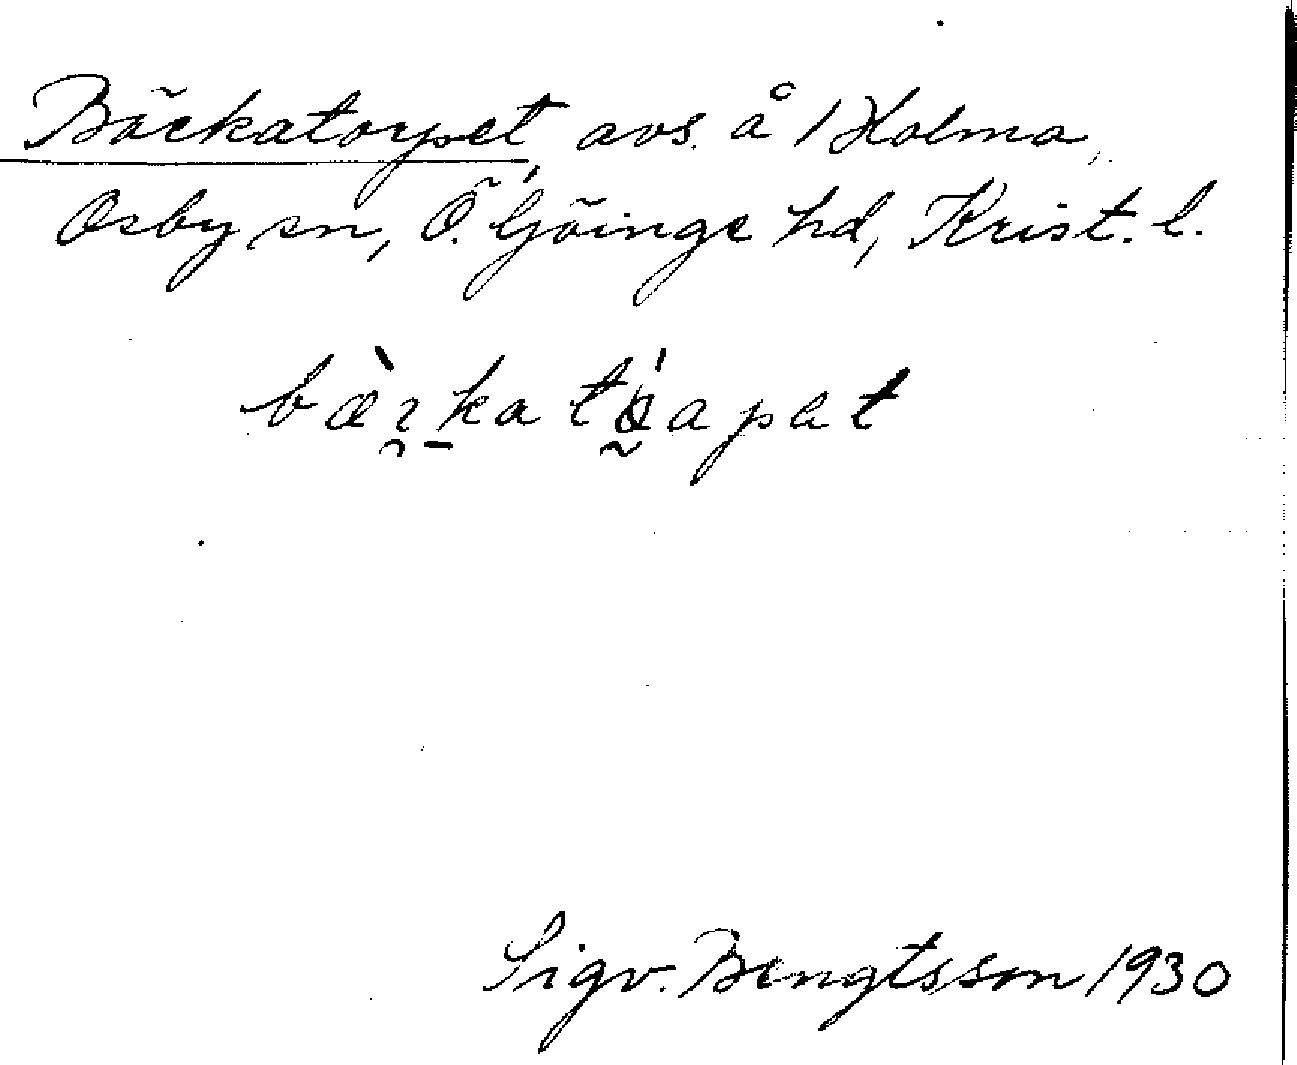 Bäckatorpet, avs. å 1 Holma,
Osby sn, Ö. Göinge hd, Krist. l.
Sigv. Bengtsson 1930